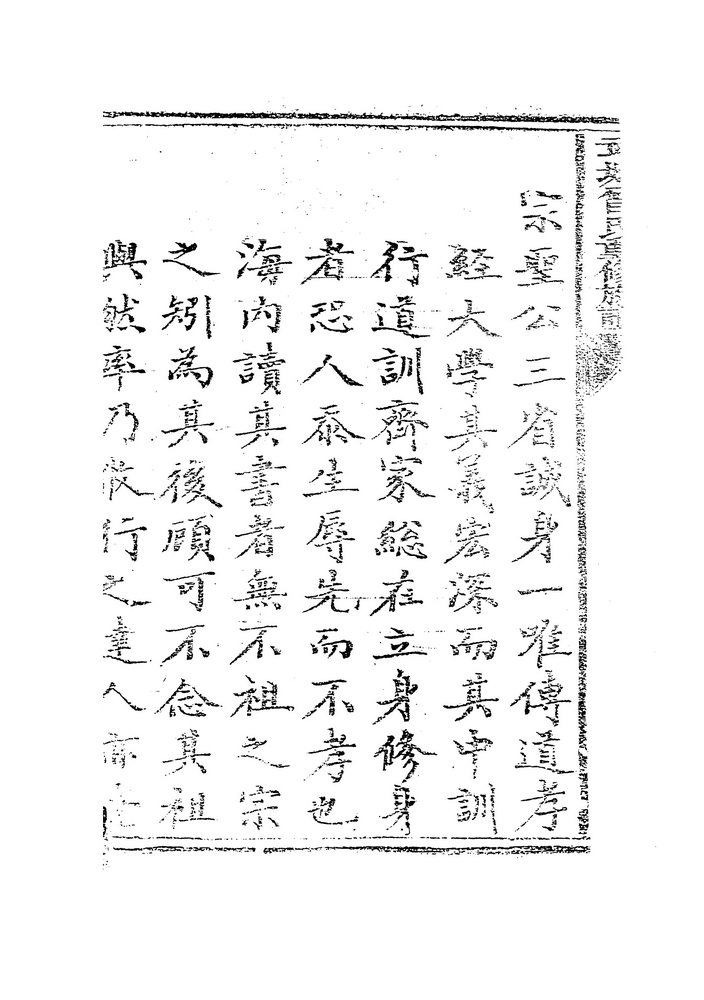 宗聖公三省誠身一唯傳道孝
經大學其義宏深而其中訓
行道訓齊家總在立身修身
者恐人忝生辱先而不孝也
海內讀其書者無不祖之宗
之矧為其後頎可不念其祖
與然率乃攸行之達人亦